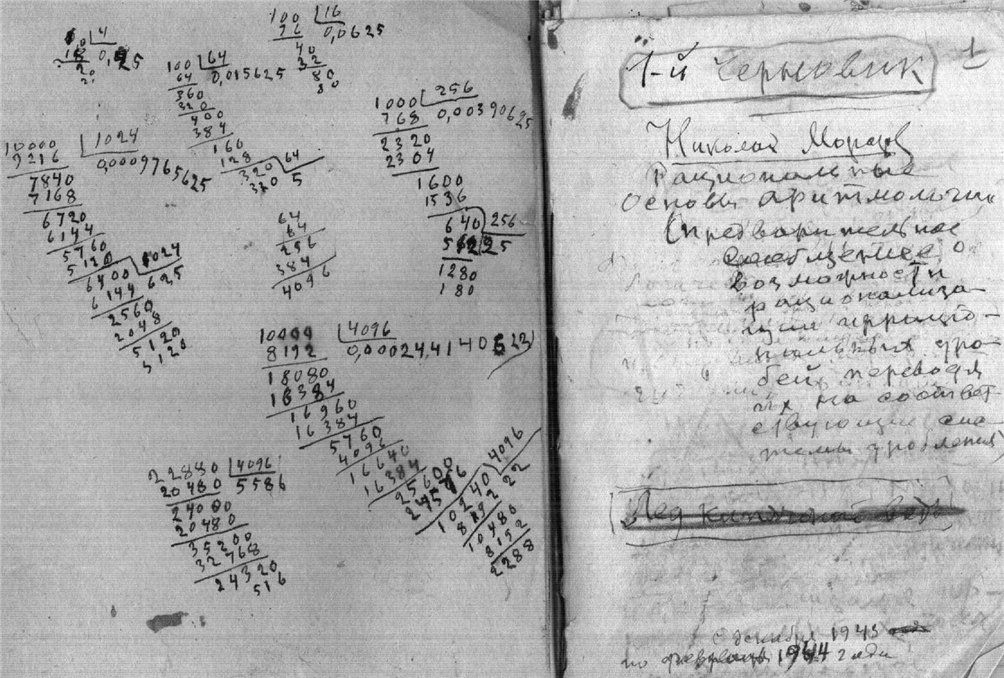 100 16
96 0,0625
40
32
80
80
4
0,25
20
20
100 64
64 0,015625
360
320
400
384
160
128
320 64
320 5
1000 256
768 0,00390625
2320
2304
1600
1536
640 256
25
1280
180
10000 1024
9216 0,0009765625
7840
7168
6720
6144
5760
5120
6400 1024
6144 625
2560
2048
5120
5120
64
64
256
384
4096
10000 4096
8192
18080
16384
16960
16384
5760
4096
16640
16384
25600
24576
10240 4096
8192 22
10480
8192
2288
22880 4096
20480 5586
24000
20480
35200
32768
24320
516
1
1-й Черновик
Николай Морозов
Рациональные
основы аритмологии
(предварительное
сообщение о
возможности
рационализа-
ции иррацио-
нальных дро-
бей, переводя
их на соответ-
ствующие сис-
темы дробления)
с декабря 1943
по февраль 1944 года